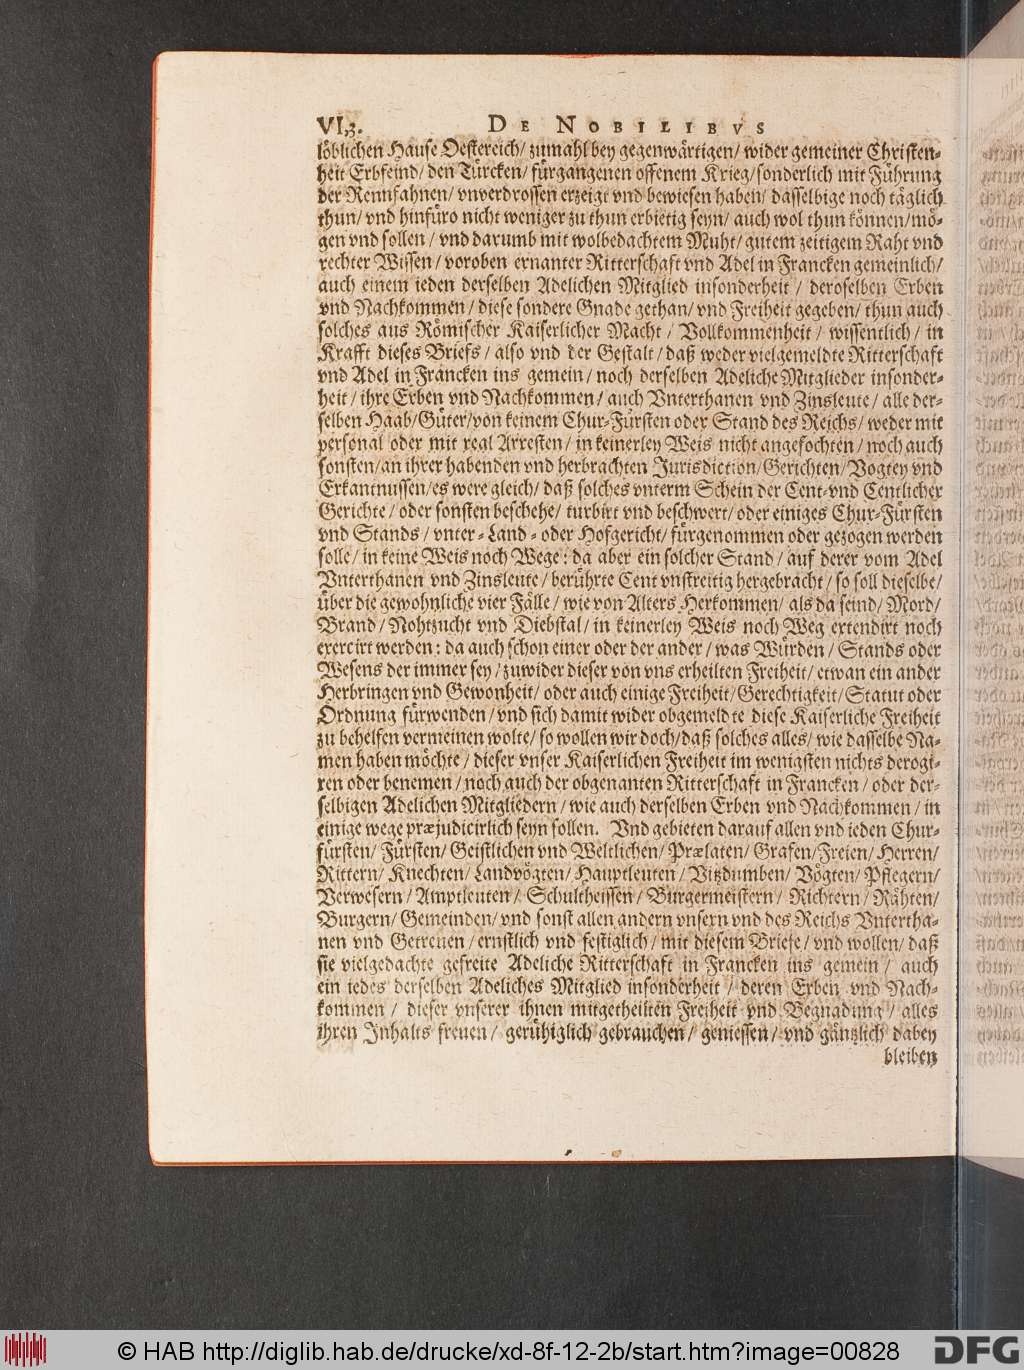 VI,3. DE NOBILIBVS
löblichen Hause Oestereich/ zumahl bey gegenwärtigen/ wider gemeiner Christen-
heit Erbfeind/ den Türcken/ fürgangenen offenem Krieg/ sonderlich mit Führung
der Rennfahnen/ vnverdrossen erzeigt vnd bewiesen haben/ dasselbige noch täglich
thun/ vnd hinfüro nicht weniger zu thun erbietig seyn/ auch wol thun können/ mö-
gen vnd sollen/ vnd darumb mit wolbedachtem Muht/ gutem zeitigem Raht vnd
rechter Wissen/ voroben ernanter Ritterschaft vnd Adel in Francken gemeinlich/
auch einem ieden derselben Adelichen Mitglied insonderheit/ deroselben Erben
vnd Nachkommen/ diese sondere Gnade gethan/ vnd Freiheit gegeben/ thun auch
solches aus Römischer Kaiserlicher Macht/ Vollkommenheit/ wissentlich/ in
Krafft dieses Briefs/ also vnd der Gestalt/ daß weder vielgemeldte Ritterschaft
vnd Adel in Francken ins gemein/ noch derselben Adeliche Mitglieder insonder-
heit/ ihre Erben vnd Nachkommen/ auch Vnterthanen vnd Zinsleute/ alle der-
selben Haab/ Güter/ von keinem Chur-Fürsten oder Stand des Reichs/ weder mit
personal oder mit real Arresten/ in keinerley Weis nicht angefochten/ noch auch
sonsten/ an ihrer habenden vnd herbrachten Jurisdiction/ Gerichten/ Vogtey vnd
Erkantnussen/ es were gleich/ daß solches vnterm Schein der Cent- vnd Centlicher
Gerichte/ oder sonsten beschehe/ turbirt vnd beschwert/ oder einiges Chur-Fürsten
vnd Stands/ vnter- Land- oder Hofgericht/ fürgenommen oder gezogen werden
solle/ in keine Weis noch Wege: da aber ein solcher Stand/ auf derer vom Adel
Vnterthanen vnd Zinsleute/ berührte Cent vnstreitig hergebracht/ so soll dieselbe/
über die gewohnliche vier Fälle/ wie von Alters Herkommen/ als da seind/ Mord/
Brand/ Nohtzucht vnd Diebstal/ in keinerley Weis noch Weg extendirt noch
exercirt werden: da auch schon einer oder der ander/ was Würden/ Stands oder
Wesens der immer sey/ zuwider dieser von vns erheilten Freiheit/ etwan ein ander
Herbringen vnd Gewonheit/ oder auch einige Freiheit/ Gerechtigkeit/ Statut oder
Ordnung fürwenden/ vnd sich damit wider obgemeldte diese Kaiserliche Freiheit
zu behelfen vermeinen wolte/ so wollen wir doch/ daß solches alles/ wie dasselbe Na-
men haben möchte/ dieser vnser Kaiserlichen Freiheit im wenigsten nichts derogi-
ren oder benemen/ noch auch der obgenanten Ritterschaft in Francken/ oder der-
selbigen Adelichen Mitgliedern/ wie auch derselben Erben vnd Nachkommen/ in
einige wege præjudicirlich seyn sollen. Vnd gebieten darauf allen vnd ieden Chur-
fürsten/ Fürsten/ Geistlichen vnd Weltlichen/ Prælaten/ Grafen/ Freien/ Herren/
Rittern/ Knechten/ Landvögten/ Hauptleuten/ Vitzdumben/ Vögten/ Pflegern/
Verwesern/ Amptleuten/ Schultheissen/ Burgermeistern/ Richtern/ Rähten/
Burgern/ Gemeinden/ vnd sonst allen andern vnsern vnd des Reichs Vntertha-
nen vnd Getreuen/ ernstlich vnd festiglich/ mit diesem Briefe/ vnd wollen/ daß
sie vielgedachte gefreite Adeliche Ritterschaft in Francken ins gemein/ auch
ein iedes derselben Adeliches Mitglied insonderheit/ deren Erben vnd Nach-
kommen/ dieser vnserer ihnen mitgetheilten Freiheit vnd Begnadung/ alles
ihren Inhalts freuen/ gerühiglich gebrauchen/ geniessen/ vnd gäntzlich dabey
bleiben
© HAB http://diglib.hab.de/drucke/xd-8f-12-2b/start.htm?image=00828
DFG